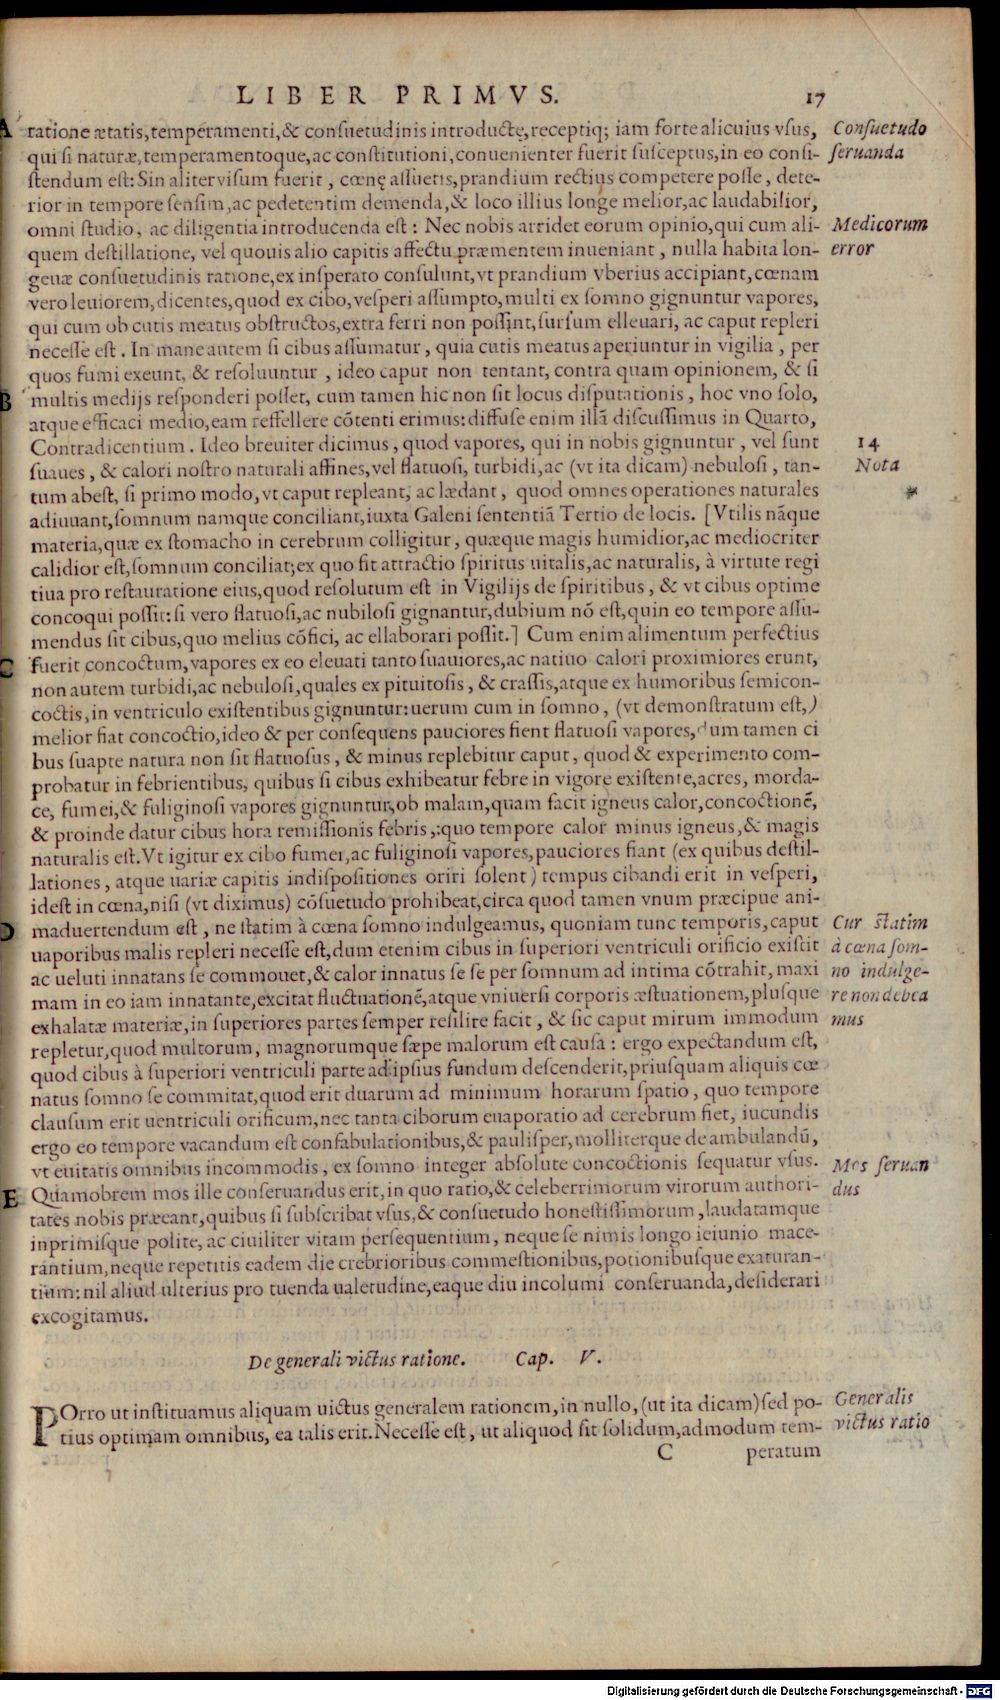 LIBER PRIMVS. 17
A ratione ætatis, temperamenti, & consuetudinis introductę, receptiq; iam forte alicuius vsus,
Consuetudo
qui si naturæ, temperamentoque, ac constitutioni, conuenienter fuerit susceptus, in eo consi-
seruanda
stendum est: Sin aliter visum fuerit, cœnę assuetis, prandium rectius competere posse, dete-
rior in tempore sensim, ac pedetentim demenda, & loco illius longe melior, ac laudabilior,
omni studio, ac diligentia introducenda est: Nec nobis arridet eorum opinio, qui cum ali-
Medicorum
quem destillatione, vel quouis alio capitis affectu præmentem inueniant, nulla habita lon-
error
geuæ consuetudinis ratione, ex insperato consulunt, vt prandium vberius accipiant, cœnam
vero leuiorem, dicentes, quod ex cibo, vesperi assumpto, multi ex somno gignuntur vapores,
qui cum ob cutis meatus obstructos, extra ferri non possint, sursum elleuari, ac caput repleri
necesse est. In mane autem si cibus assumatur, quia cutis meatus aperiuntur in vigilia, per
quos fumi exeunt, & resoluuntur, ideo caput non tentant, contra quam opinionem, & si
B multis medijs responderi posset, cum tamen hic non sit locus disputationis, hoc vno solo,
atque efficaci medio, eam reffellere cōtenti erimus: diffuse enim illā discussimus in Quarto,
Contradicentium. Ideo breuiter dicimus, quod vapores, qui in nobis gignuntur, vel sunt
14
suaues, & calori nostro naturali affines, vel flatuosi, turbidi, ac (vt ita dicam) nebulosi, tan-
Nota
tum abest, si primo modo, vt caput repleant, ac lædant, quod omnes operationes naturales
*
adiuuant, somnum namque conciliant, iuxta Galeni sententiā Tertio de locis. [Vtilis nāque
materia, quæ ex stomacho in cerebrum colligitur, quæque magis humidior, ac mediocriter
calidior est, somnum conciliat; ex quo fit attractio spiritus uitalis, ac naturalis, à virtute regi
tiua pro restauratione eius, quod resolutum est in Vigilijs de spiritibus, & vt cibus optime
concoqui possit: si vero flatuosi, ac nubilosi gignantur, dubium nō est, quin eo tempore assu-
mendus sit cibus, quo melius cōfici, ac ellaborari possit.] Cum enim alimentum perfectius
C fuerit concoctum, vapores ex eo eleuati tanto suauiores, ac natiuo calori proximiores erunt,
non autem turbidi, ac nebulosi, quales ex pituitosis, & crassis, atque ex humoribus semicon-
coctis, in ventriculo existentibus gignuntur: uerum cum in somno, (vt demonstratum est,)
melior fiat concoctio, ideo & per consequens pauciores fient flatuosi vapores, dum tamen ci
bus suapte natura non sit flatuosus, & minus replebitur caput, quod & experimento com-
probatur in febrientibus, quibus si cibus exhibeatur febre in vigore existente, acres, morda-
ce, fumei, & fuliginosi vapores gignuntur, ob malam, quam facit igneus calor, concoctionē,
& proinde datur cibus hora remissionis febris,: quo tempore calor minus igneus, & magis
naturalis est. Vt igitur ex cibo fumei, ac fuliginosi vapores, pauciores fiant (ex quibus destil-
lationes, atque uariæ capitis indispositiones oriri solent) tempus cibandi erit in vesperi,
idest in cœna, nisi (vt diximus) cōsuetudo prohibeat, circa quod tamen vnum præcipue ani-
D maduertendum est, ne statim à cœna somno indulgeamus, quoniam tunc temporis, caput
Cur statim
uaporibus malis repleri necesse est, dum etenim cibus in superiori ventriculi orificio existit
à cœna som-
ac ueluti innatans se commouet, & calor innatus se se per somnum ad intima cōtrahit, maxi
no indulge-
mam in eo iam innatante, excitat fluctuationē, atque vniuersi corporis æstuationem, plusque
re non debea
exhalatæ materiæ, in superiores partes semper resilire facit, & sic caput mirum immodum
mus
repletur, quod multorum, magnorumque sæpe malorum est causa: ergo expectandum est,
quod cibus à superiori ventriculi parte ad ipsius fundum descenderit, priusquam aliquis cœ
natus somno se commitat, quod erit duarum ad minimum horarum spatio, quo tempore
clausum erit uentriculi orificum, nec tanta ciborum euaporatio ad cerebrum fiet, iucundis
ergo eo tempore vacandum est confabulationibus, & paulisper, molliterque deambulandū,
vt euitatis omnibus incommodis, ex somno integer absolute concoctionis sequatur vsus.
Mos seruan
E Quamobrem mos ille conseruandus erit, in quo ratio, & celeberrimorum virorum authori-
dus
tates nobis præeant, quibus si subscribat vsus, & consuetudo honestissimorum, laudatamque
inprimisque polite, ac ciuiliter vitam persequentium, neque se nimis longo ieiunio mace-
rantium, neque repetitis eadem die crebrioribus commestionibus, potionibusque exaturan-
tium: nil aliud ulterius pro tuenda ualetudine, eaque diu incolumi conseruanda, desiderari
excogitamus.
De generali victus ratione. Cap. V.
POrro ut instituamus aliquam uictus generalem rationem, in nullo, (ut ita dicam) sed po-
Generalis
tius optimam omnibus, ea talis erit. Necesse est, ut aliquod sit solidum, admodum tem-
victus ratio
C peratum
Digitalisierung gefördert durch die Deutsche Forschungsgemeinschaft - DFG